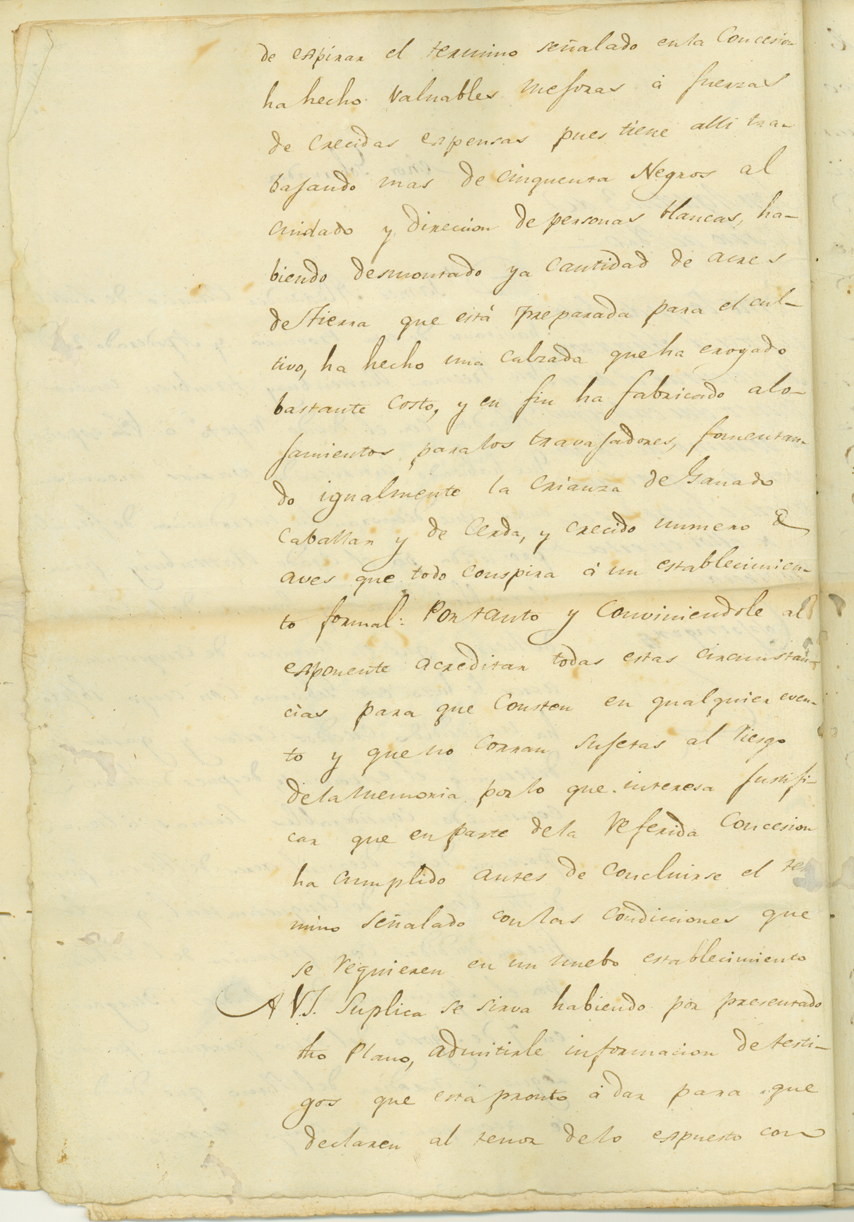 de espirar el termino señalado en la Concesion
ha hecho valuables mejoras à fuerzas
de Crecidas espensas pues tiene alli tra-
bajando mas de cinquenta Negros al
Cuidado y direccion de personas blancas, ha-
biendo desmontado ya Cantidad de acres
de Tierra que está preparada para el cul-
tivo, ha hecho una Calzada que ha erogado
bastante Costo, y en fin ha fabricado alo-
jamientos para los travajadores, fomentan-
do igualmente la Crianza de Ganado
Caballar y de Cerda, y crecido numero de
aves que todo conspira à un establecimien-
to formal: Por tanto y Conviniendole al
esponente acreditar todas estas circunstan-
cias para que Consten en qualquier even-
to y que no Corran sujetas al riesgo
de la memoria por lo que interesa justifi-
car que en parte de la referida Concesion
ha Cumplido antes de Concluirse el ter
mino señalado con las Condiciones que
se requieren en un nuebo establecimiento
A VS. Suplica se sirva habiendo por presentado
dho Plano, admitirle informacion de testi-
gos que está pronto à dar para que
declaren al tenor de lo espuesto con